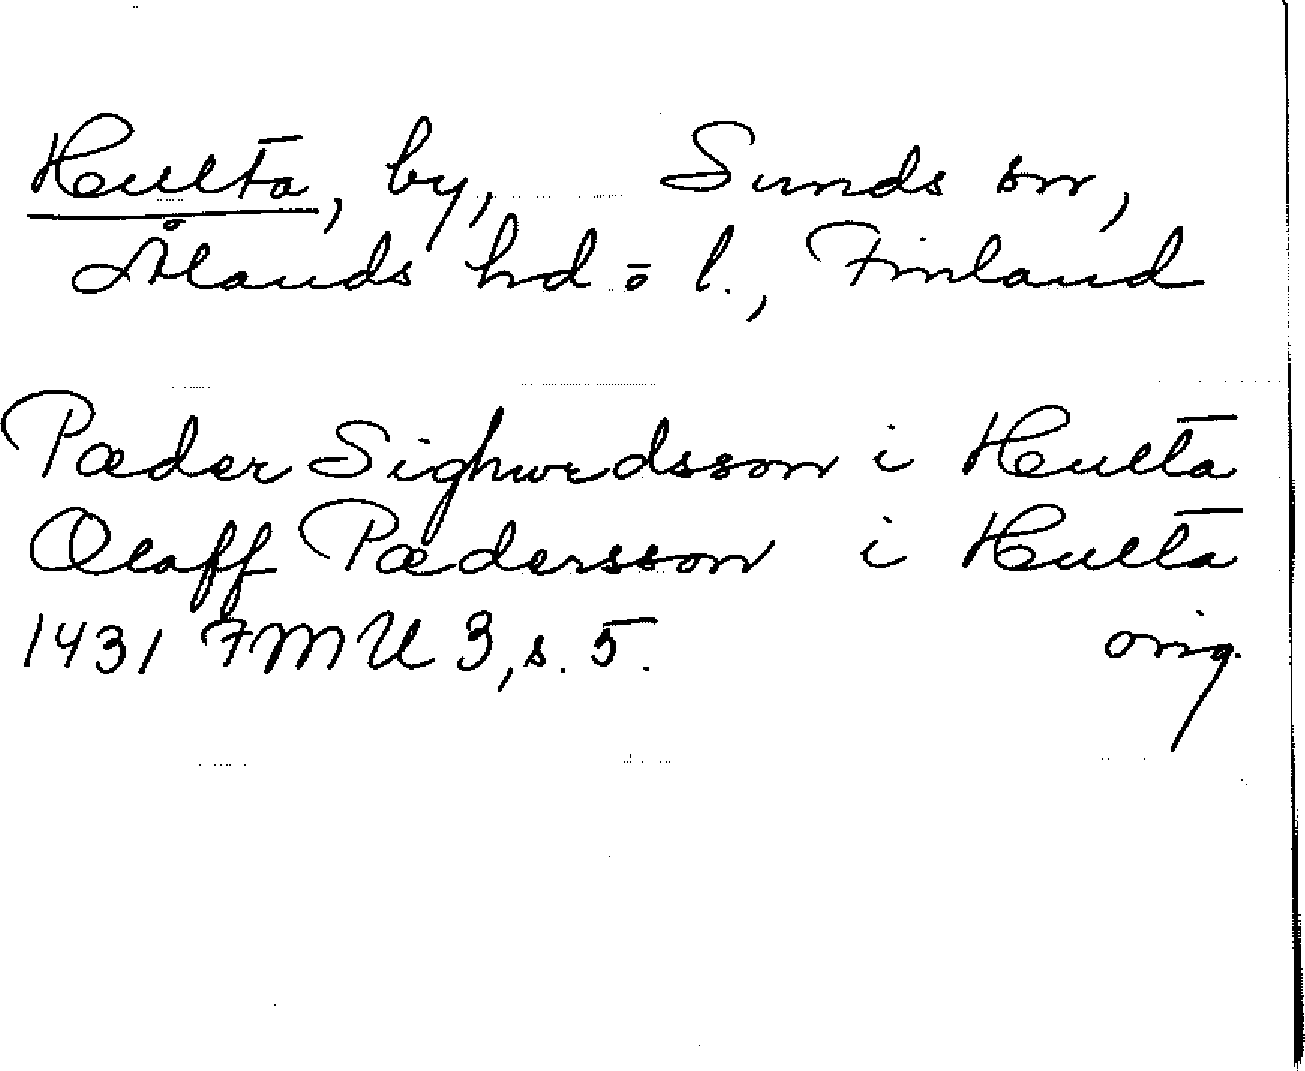 Hulta, by, Sunds sn,
Ålands hd o l., Finland
Pæder Sighwrdsson i Hulta
Olaff Pædersson i Hulta
1431 FMU 3, s. 5. orig.